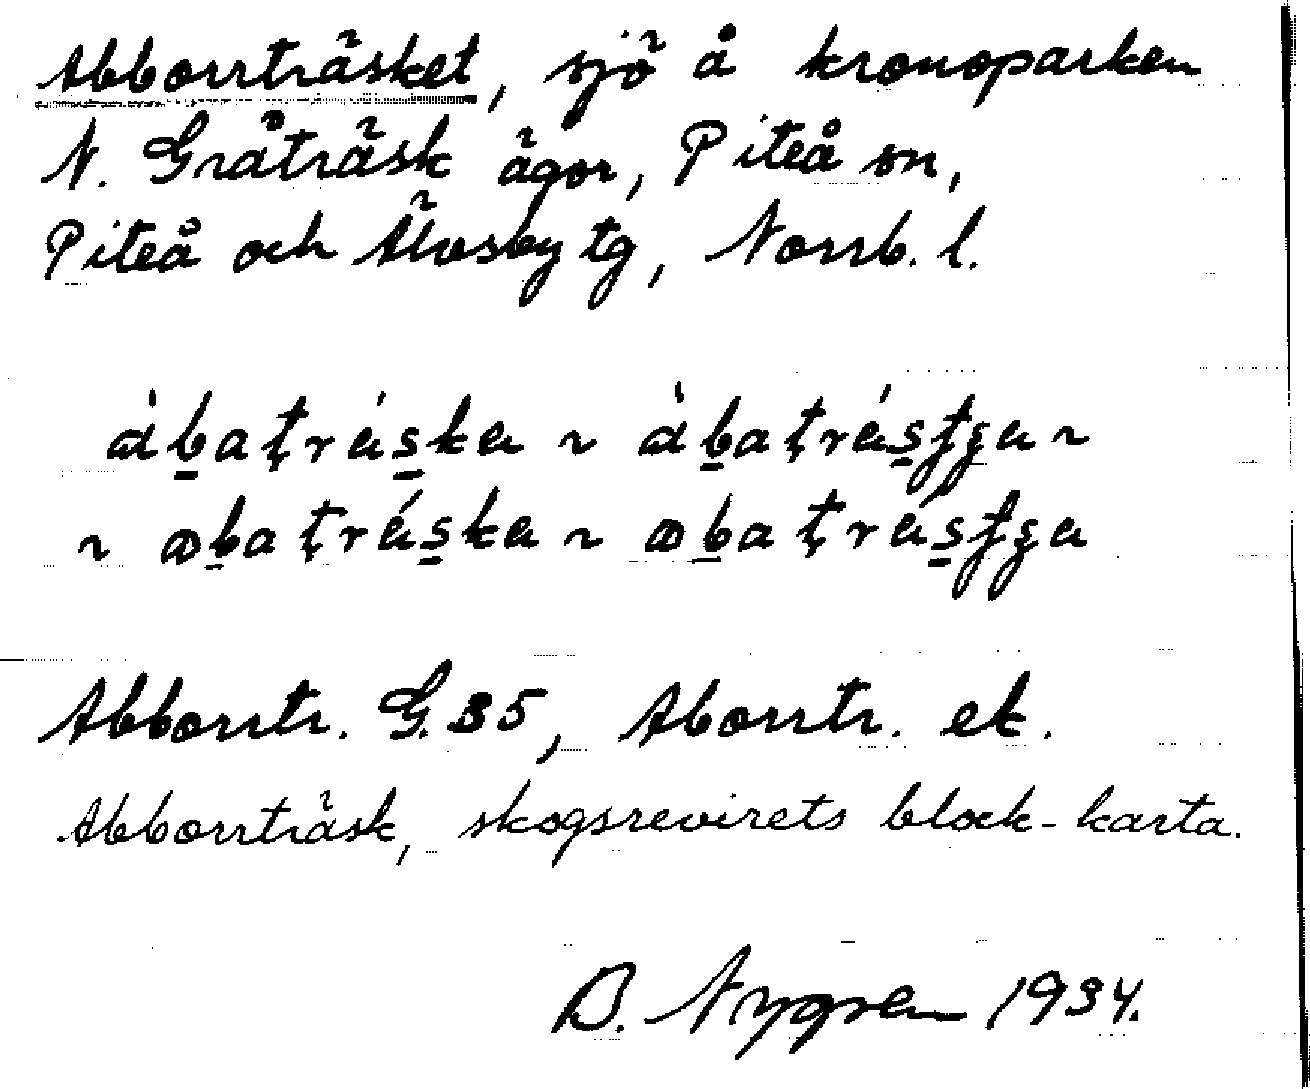 Abborrträsket, sjö å kronoparken
N. Gråträsk ägor, Piteå sn,
Piteå och Älvsby tg, Norrb. l.
àb̠aṭrás̠ka ~ àb̠aṭrás̠ʃʒa ~
~ ab̠aṭrás̠ka ~ ab̠aṭrás̠ʃʒa
Abborrtr. G. 35, Aborrtr. ek.
Abborrträsk, skogsrevirets block-karta.
B. Nygren 1934.